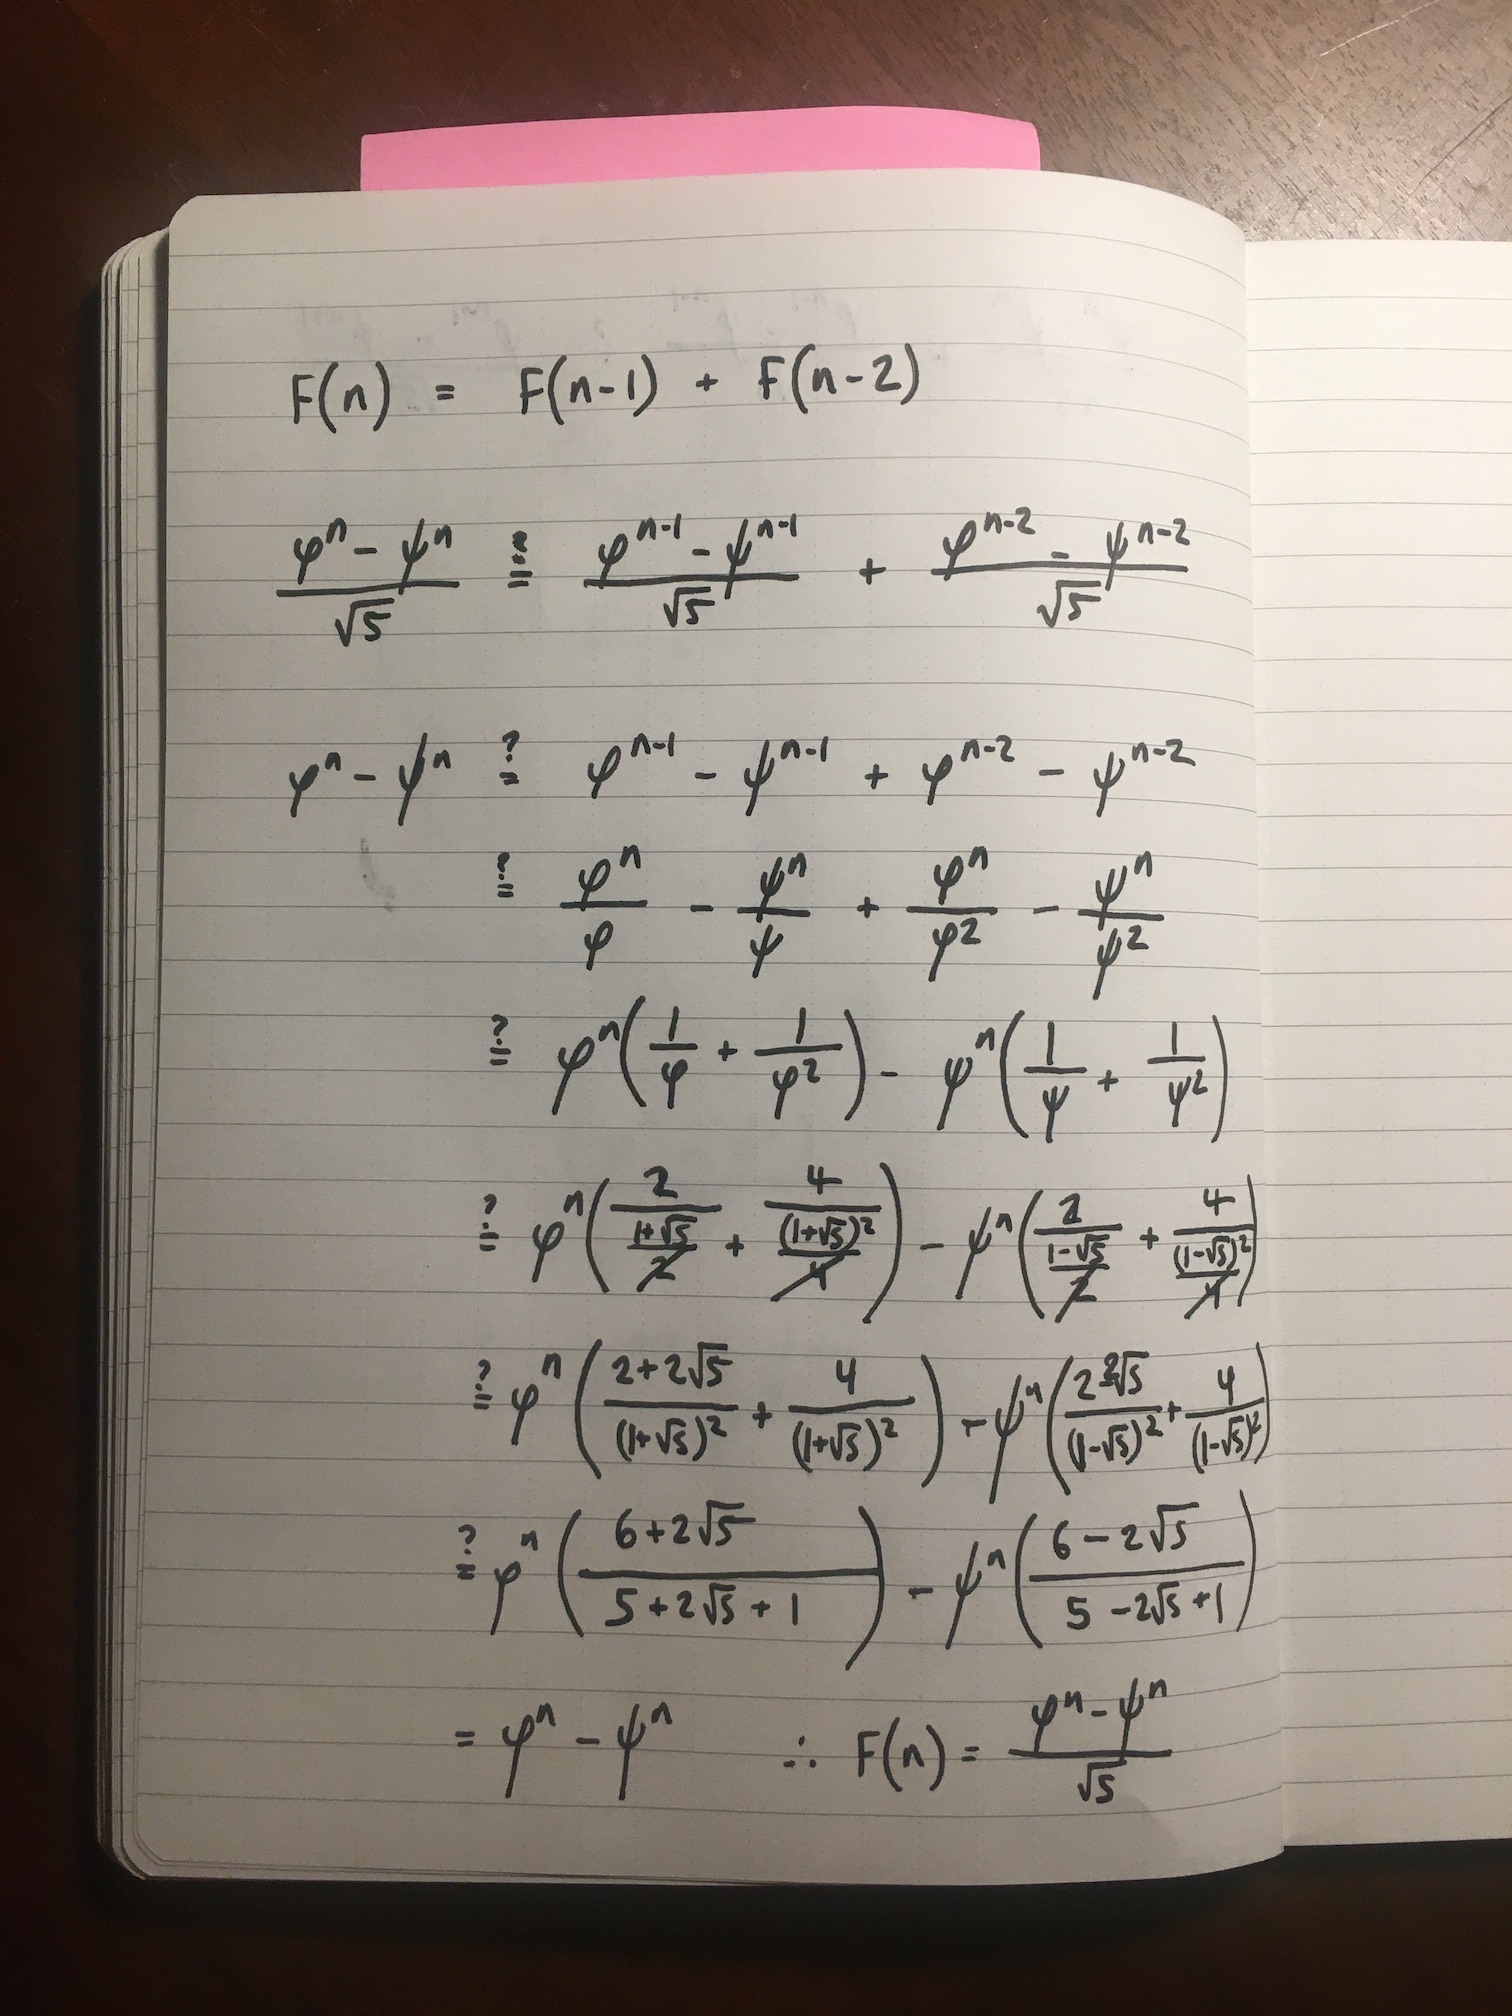 F(n) = F(n-1) + F(n-2)
(φⁿ - ψⁿ)/√5 ≟ (φⁿ⁻¹ - ψⁿ⁻¹)/√5 + (φⁿ⁻² - ψⁿ⁻²)/√5
φⁿ - ψⁿ ≟ φⁿ⁻¹ - ψⁿ⁻¹ + φⁿ⁻² - ψⁿ⁻²
≟ φⁿ/φ - ψⁿ/ψ + φⁿ/φ² - ψⁿ/ψ²
≟ φⁿ(1/φ + 1/φ²) - ψⁿ(1/ψ + 1/ψ²)
≟ φⁿ(2/((1+√5)/2) + 4/((1+√5)²/4)) - ψⁿ(2/((1-√5)/2) + 4/((1-√5)²/4))
≟ φⁿ((2+2√5)/(1+√5)² + 4/(1+√5)²) - ψⁿ((2-2√5)/(1-√5)² + 4/(1-√5)²)
≟ φⁿ((6+2√5)/(5+2√5+1)) - ψⁿ((6-2√5)/(5-2√5+1))
= φⁿ - ψⁿ ∴ F(n) = (φⁿ - ψⁿ)/√5